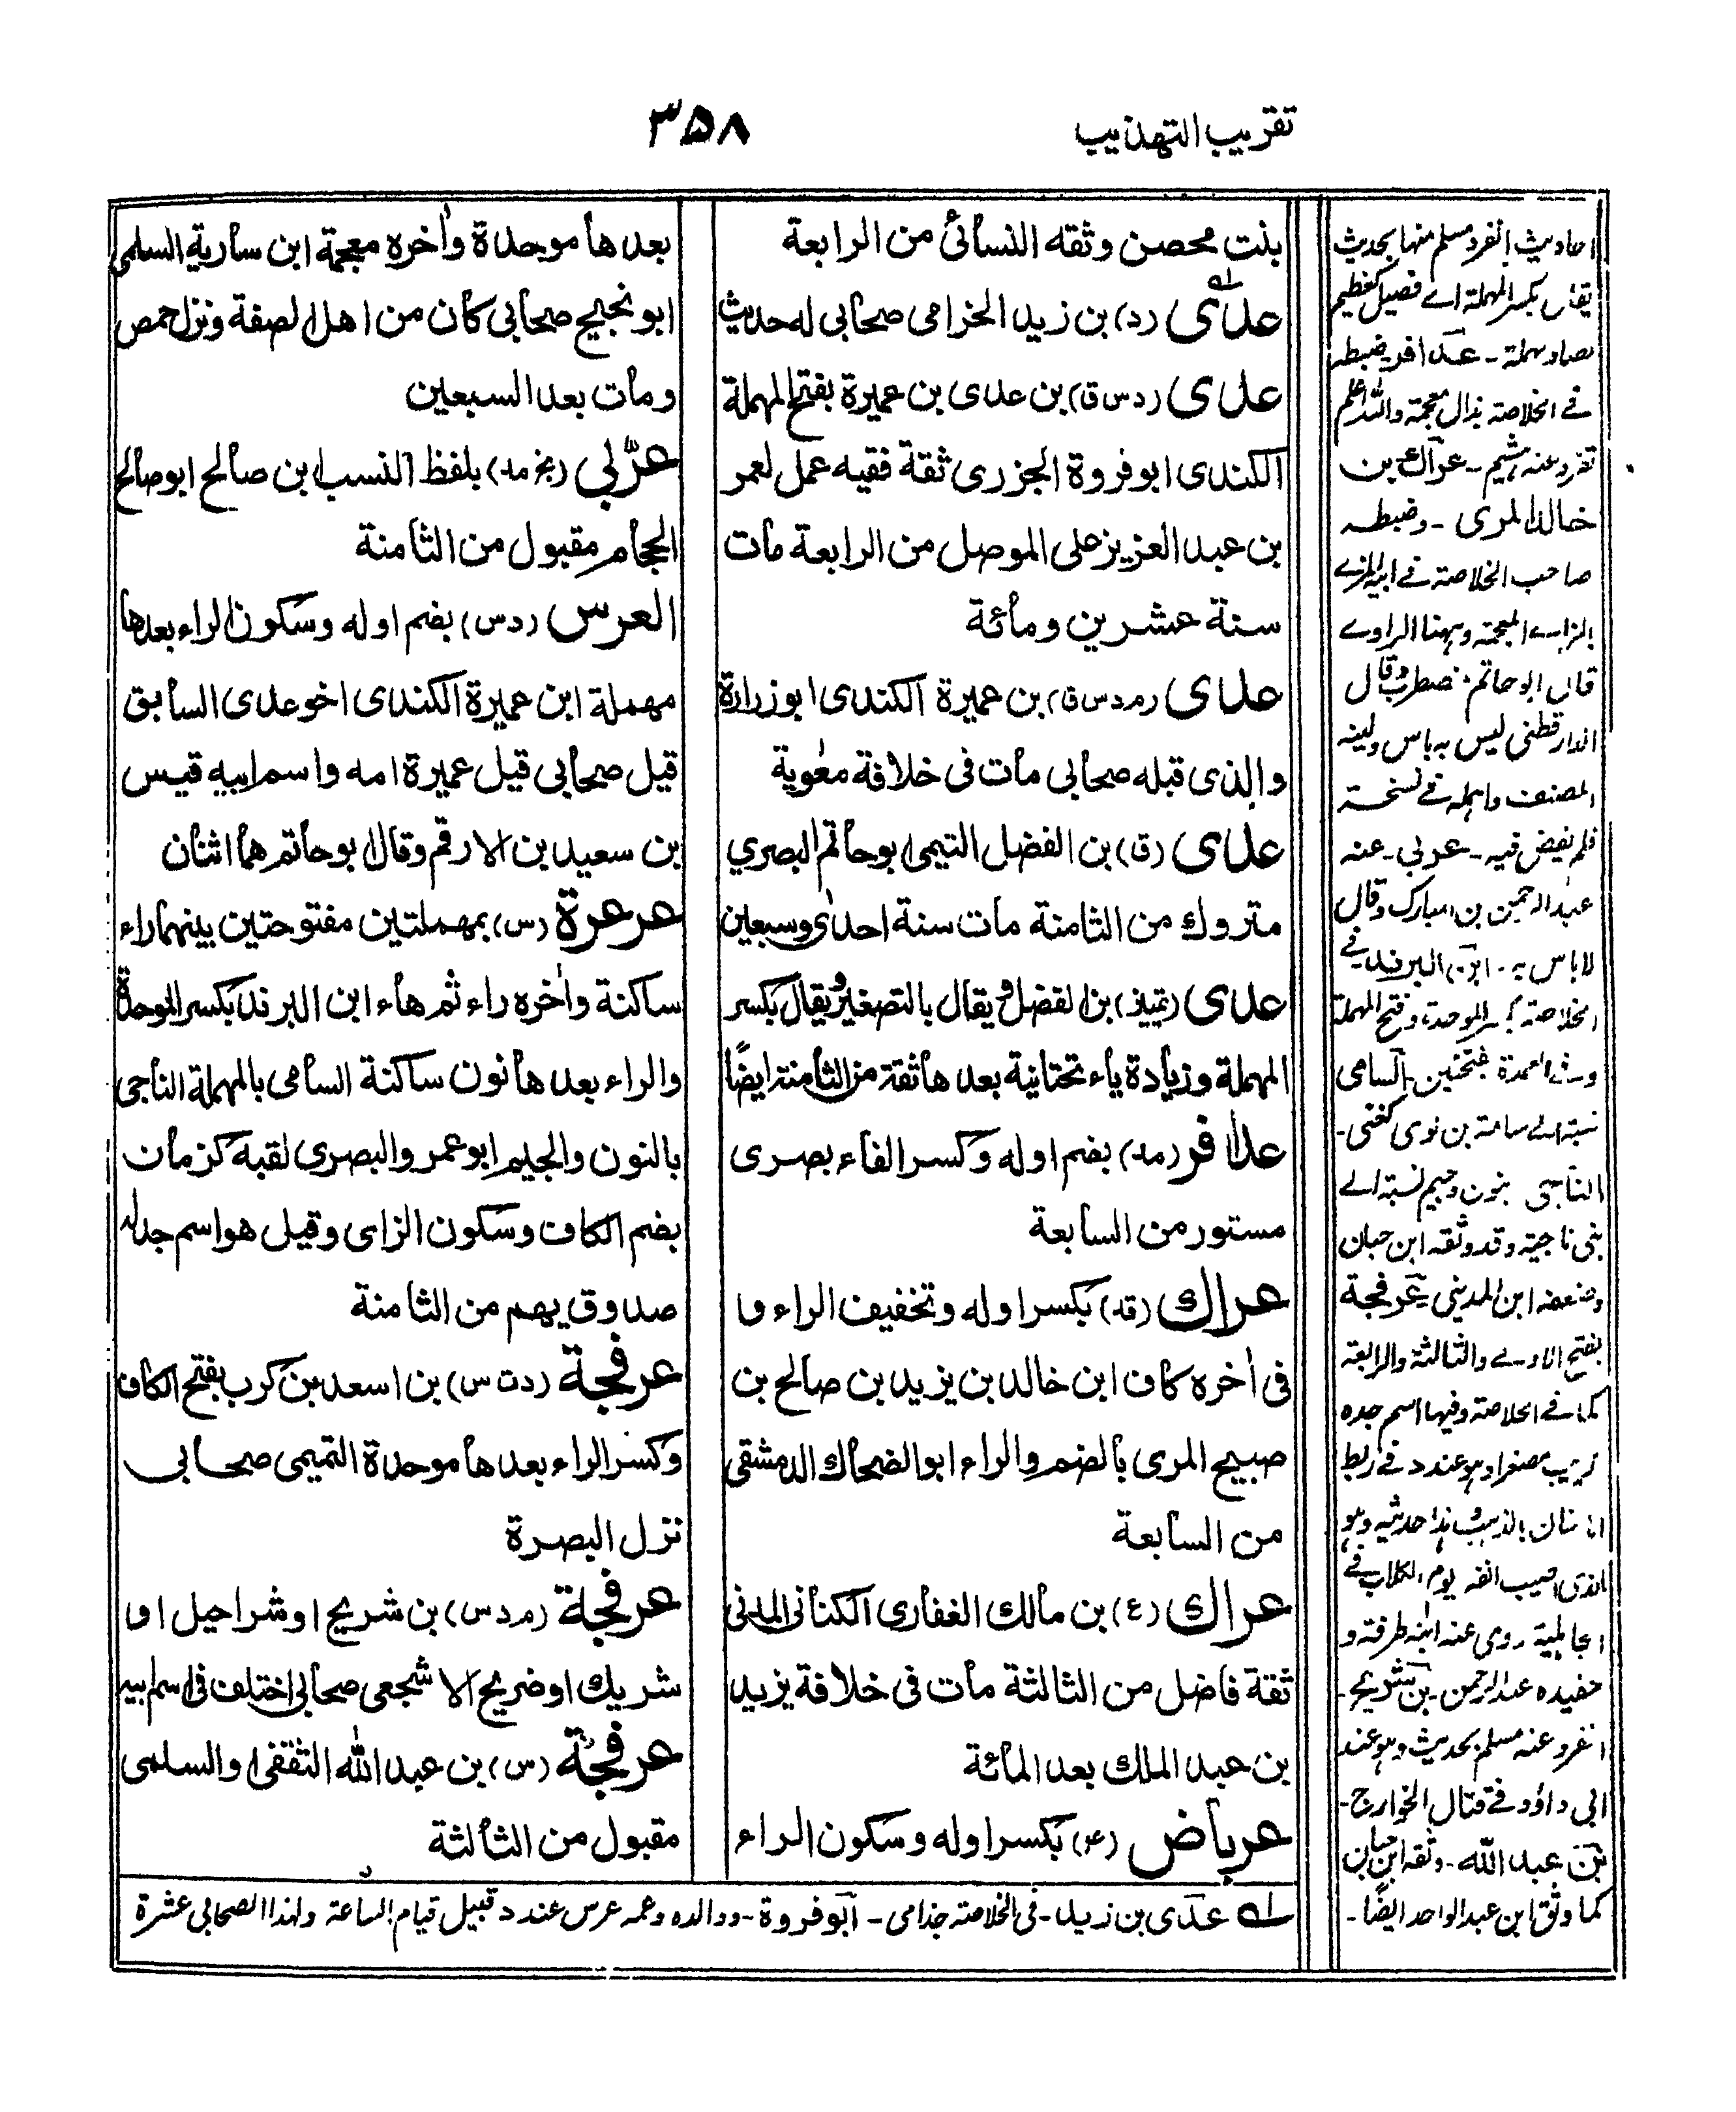 تقريب التهذيب
٣٥٨
بنت محصن وثقه النسائي من الرابعة
عدى (د) بن زيد الخزامى صحابى له حديث
عدى (د س ق) بن عدى بن عميرة بفتح المهملة
الكندى ابو فروة الجزرى ثقة فقيه عمل لعمر
بن عبد العزيز على الموصل من الرابعة مات
سنة عشرين ومائة
عدى (م د س ق) بن عميرة الكندى ابو زرارة
والذى قبله صحابى مات فى خلافة معٰوية
عدى (ق) بن الفضل التيمى ابو حاتم البصري
متروك من الثامنة مات سنة احدى وسبعين
عدى (تمييز) بن الفضل ويقال بالتصغير ويقال بكسر
المهملة وزيادة ياء تحتانية بعدها ثقة من الثامنة ايضًا
عذافر (مد) بضم اوله وكسر الفاء بصرى
مستور من السابعة
عراك (قد) بكسر اوله وتخفيف الراء و
فى اٰخره كاف ابن خالد بن يزيد بن صالح بن
صبيح المرى بالضم والراء ابو الضحاك الدمشقى
من السابعة
عراك (ع) بن مالك الغفارى الكنانى المدنى
ثقة فاضل من الثالثة مات فى خلافة يزيد
بن عبد الملك بعد المائة
عرباض (عم) بكسر اوله وسكون الراء
بعدها موحدة واٰخره معجمة ابن سارية السلمى
ابو نجيح صحابى كان من اهل الصفة ونزل حمص
ومات بعد السبعين
عربي (بخ مد) بلفظ النسب ابن صالح ابو صالح
الحجام مقبول من الثامنة
العرس (د س) بضم اوله وسكون الراء بعدها
مهملة ابن عميرة الكندى اخو عدى السابق
قيل صحابى قيل عميرة امه واسم ابيه قيس
بن سعيد بن الارقم وقال ابو حاتم هما اثنان
عرعرة (س) بمهملتين مفتوحتين بينهما راء
ساكنة واٰخره راء ثم هاء ابن البرند بكسر الموحدة
والراء بعدها نون ساكنة السامى بالمهملة الناجى
بالنون والجيم ابو عمرو البصرى لقبه كزمان
بضم الكاف وسكون الزاى وقيل هو اسم جده
صدوق يهم من الثامنة
عرفجة (د ت س) بن اسعد بن كرب بفتح الكاف
وكسر الراء بعدها موحدة التميمى صحابى
نزل البصرة
عرفجة (م د س) بن شريح او شراحيل او
شريك او ضريح الاشجعى صحابى اختلف فى اسم ابيه
عرفجة (س) بن عبد الله الثقفى او السلمى
مقبول من الثالثة
احاديث انفرد مسلم منها بحديث
بصاد مهملة - عذافر ضبطه
فے الخلاصة بذال معجمة والله اعلم
تفرد عنه هشيم - عراك بن
خالد المرى - وضبطه
صاحب الخلاصة فے المزے
بالزاے المعجمة وههنا الراوے
قال ابو حاتم مضطرب وقال
الدارقطنى ليس به باس ولينه
المصنف فے نسخة
عربي - عنه
عبد الرحمن بن المبارك وقال
لاباس به - ابن البرند فے
الخلاصة بكسر الموحدة وفتح المهملة
بفتحتين - السامى
نسبة الے سامة بن لوى كغنى -
الناجى بنون وجيم نسبة الے
بنى ناجية وقد وثقه ابن حبان
وضعفه ابن المدينى - عرفجة
بفتح الاولے والثالثة والرابعة
كما فے الخلاصة وفيها اسم جده
مصغرا وهو عند د فے ربط
الاسنان بالذهب وهذا حديثه وهو
الذى اصيب انفه يوم الكلاب فے
الجاهلية روى عنه ابنه طرفة و
حفيده عبد الرحمن - بن شريح -
انفرد عنه مسلم بحديث وهو عند
ابى داؤد فے قتال الخوارج -
بن عبد الله - وثقه ابن حبان
كما وثق ابن عبد الواحد ايضًا -
له عدى بن زيد - فى الخلاصة جذامى - ابو فروة - ووالده وعمه عرس عند د قبيل قيام الساعة ولهذا الصحابى عشرة